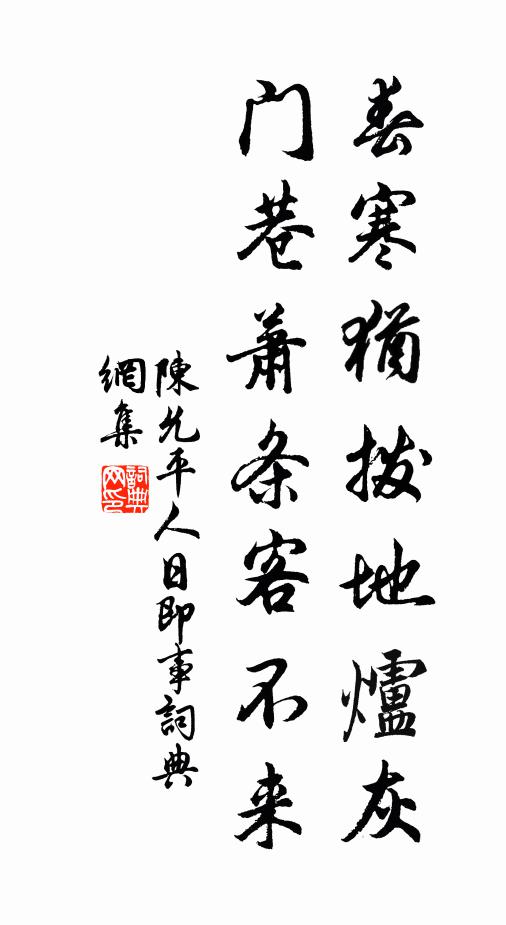 春寒猶撥地爐灰
門巷蕭条客不来
陳允平人日即事詞典
網集
詞典
网印